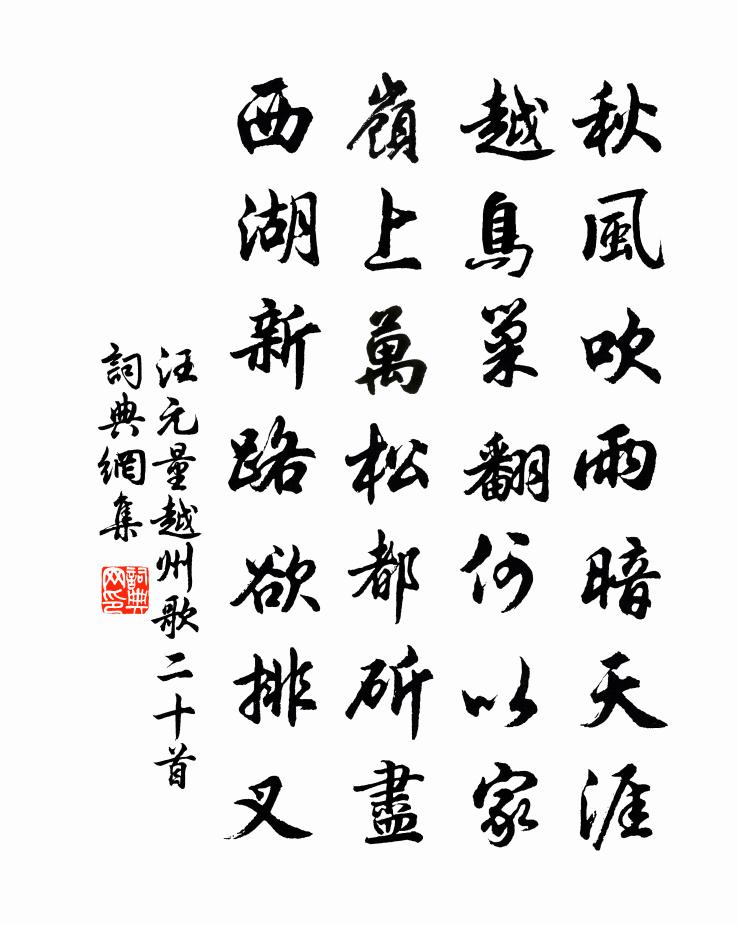 秋風吹雨暗天涯
越鳥巢翻何以家
嶺上萬松都斫盡
西湖新路欲排叉
汪元量越州歌二十首
詞典網集
詞典网印